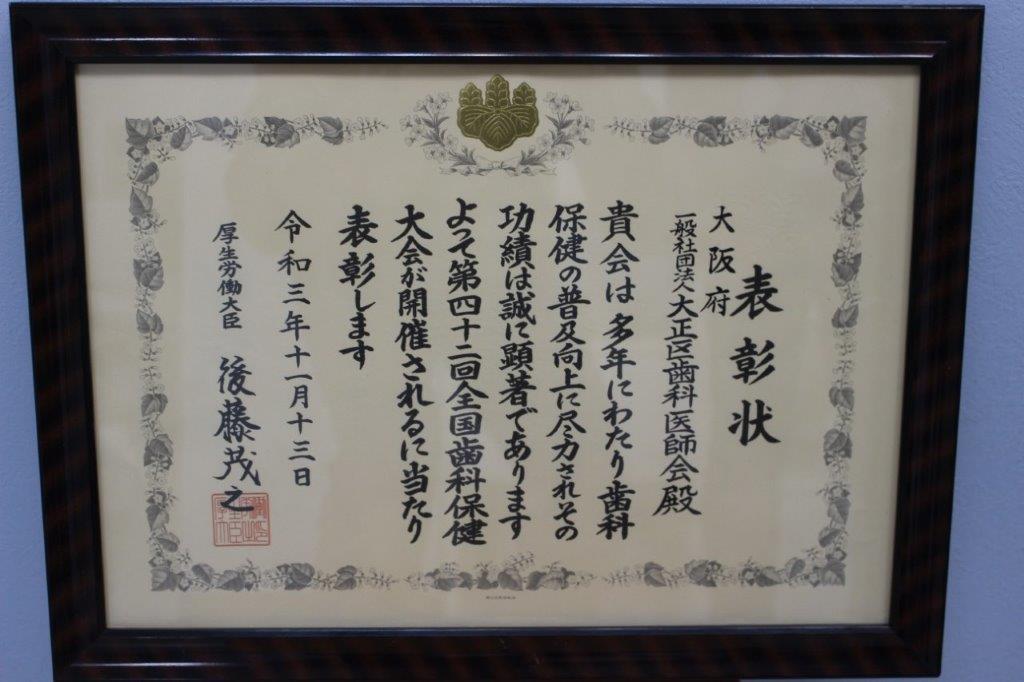 表彰状
大阪府
一般社団法人大正区歯科医師会殿
貴会は多年にわたり歯科
保健の普及向上に尽力されその
功績は誠に顕著であります
よって第四十二回全国歯科保健
大会が開催されるに当たり
表彰します
令和三年十一月十三日
厚生労働大臣 後藤茂之